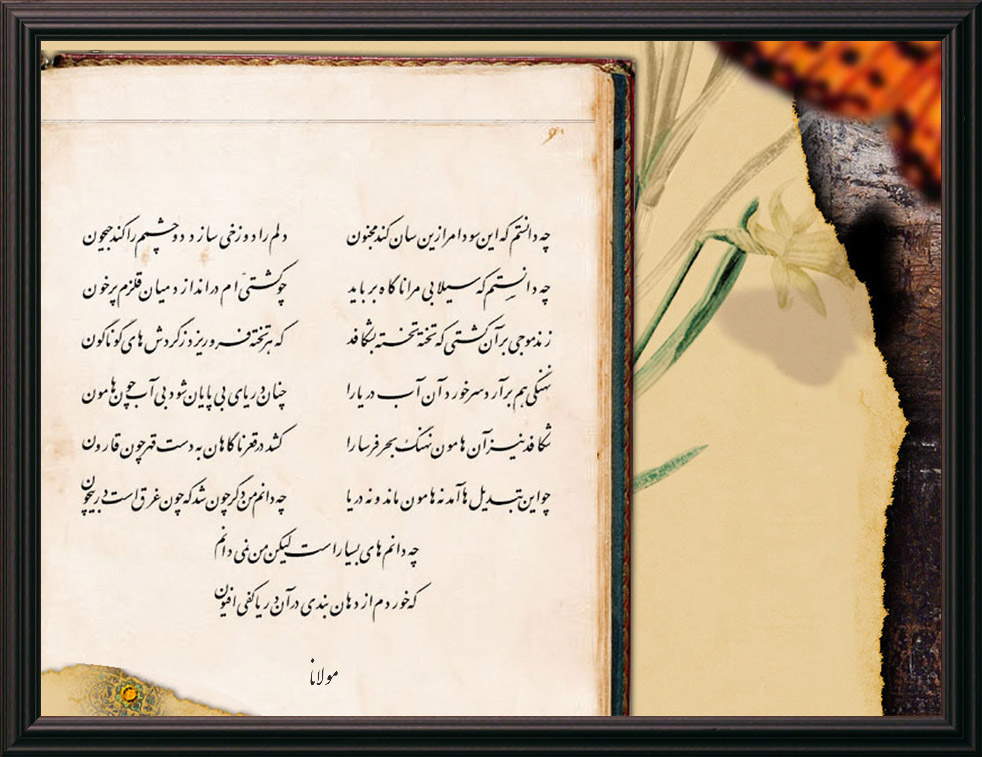 چه دانستم که این سودا مرا زین سان کند مجنون    دلم را دوزخی سازد دو چشمم را کند جیحون
چه دانستم که سیلابی مرا ناگاه برباید    چو کشتی ام دراندازد میان قلزم پرخون
زند موجی بر آن کشتی که تخته تخته بشکافد    که هر تخته فروریزد ز گردش های گوناگون
نهنگی هم برآرد سر خورد آن آب دریا را    چنان دریای بی پایان شود بی آب چون هامون
شکافد نیز آن هامون نهنگ بحر فرسا را    کشد در قعر ناگاهان به دست قهر چون قارون
چو این تبدیل ها آمد نه هامون ماند و نه دریا    چه دانم من دگر چون شد که چون غرق است در بیچون
چه دانم های بسیار است لیکن من نمی دانم
که خوردم از دهان بندی در آن دریا کفی افیون
مولانا